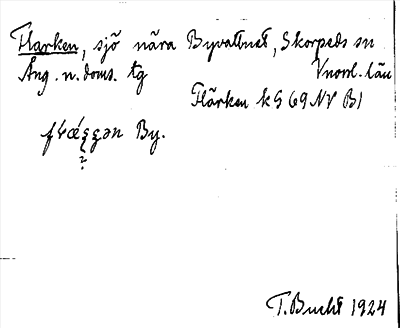 Flarken, sjö nära Byvattnet, Skorpeds sn
Ång. n. doms. tg Vnorrl. län
Flärken k G 69 NV B1
By.
?
T. Bucht 1924